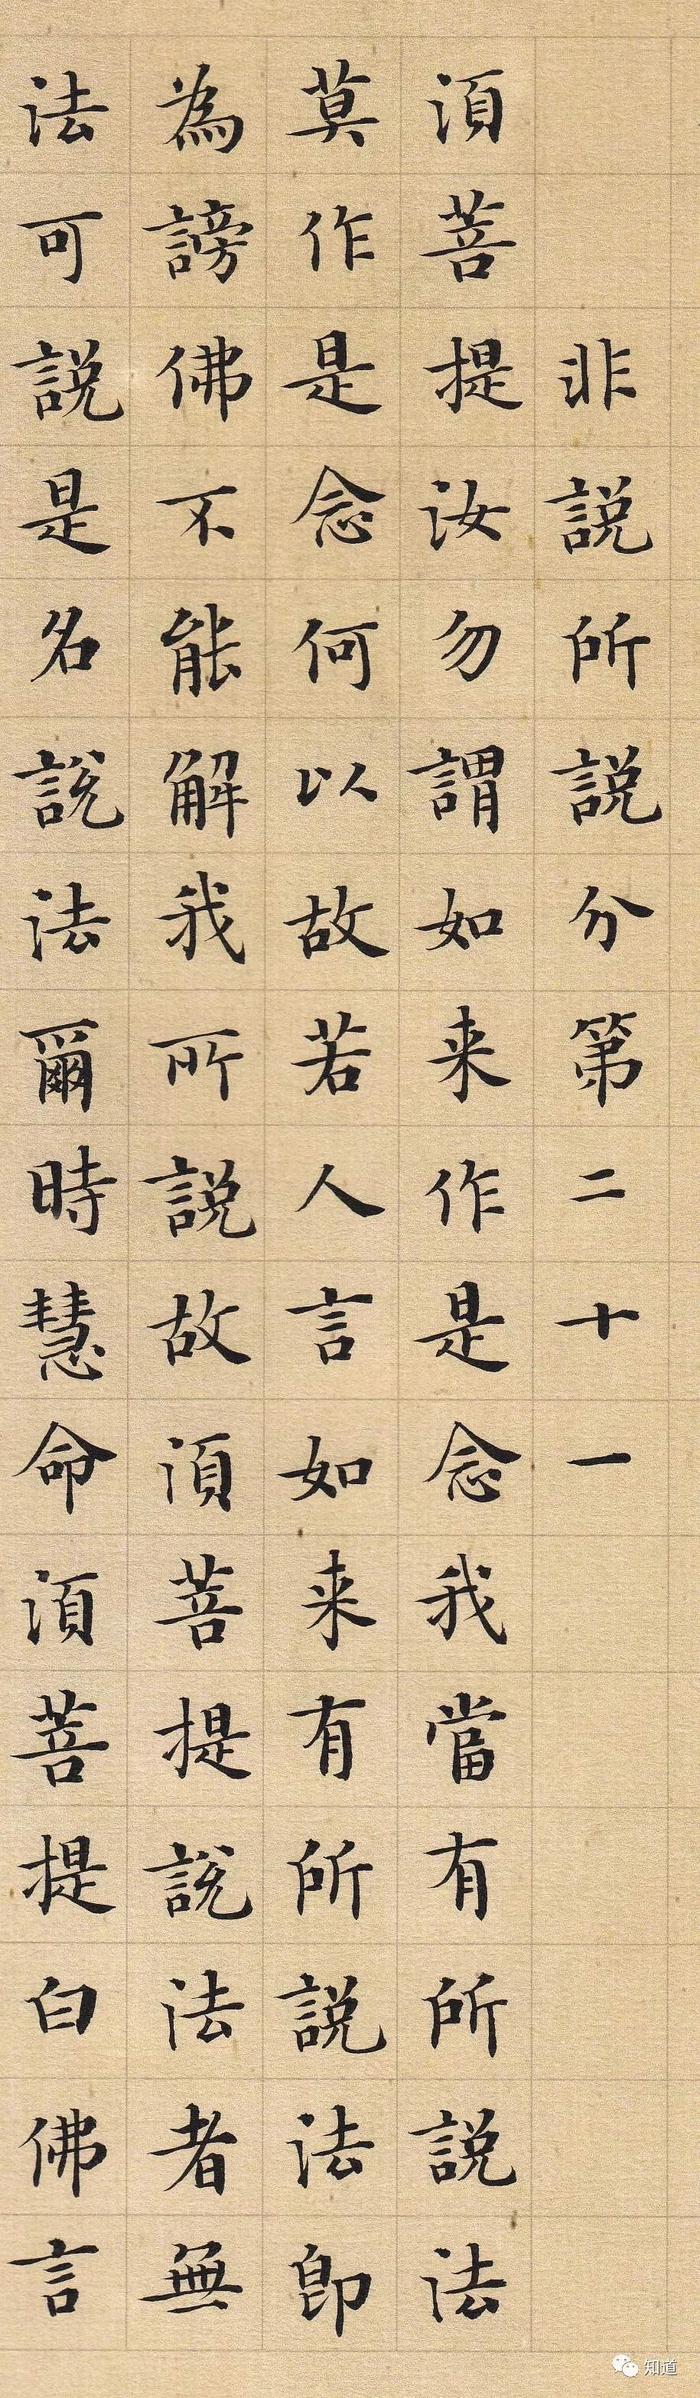 非說所說分第二十一
湏菩提汝勿謂如来作是念我當有所說法
莫作是念何以故若人言如来有所說法即
為謗佛不能解我所說故湏菩提說法者無
法可說是名說法爾時慧命湏菩提白佛言
知道